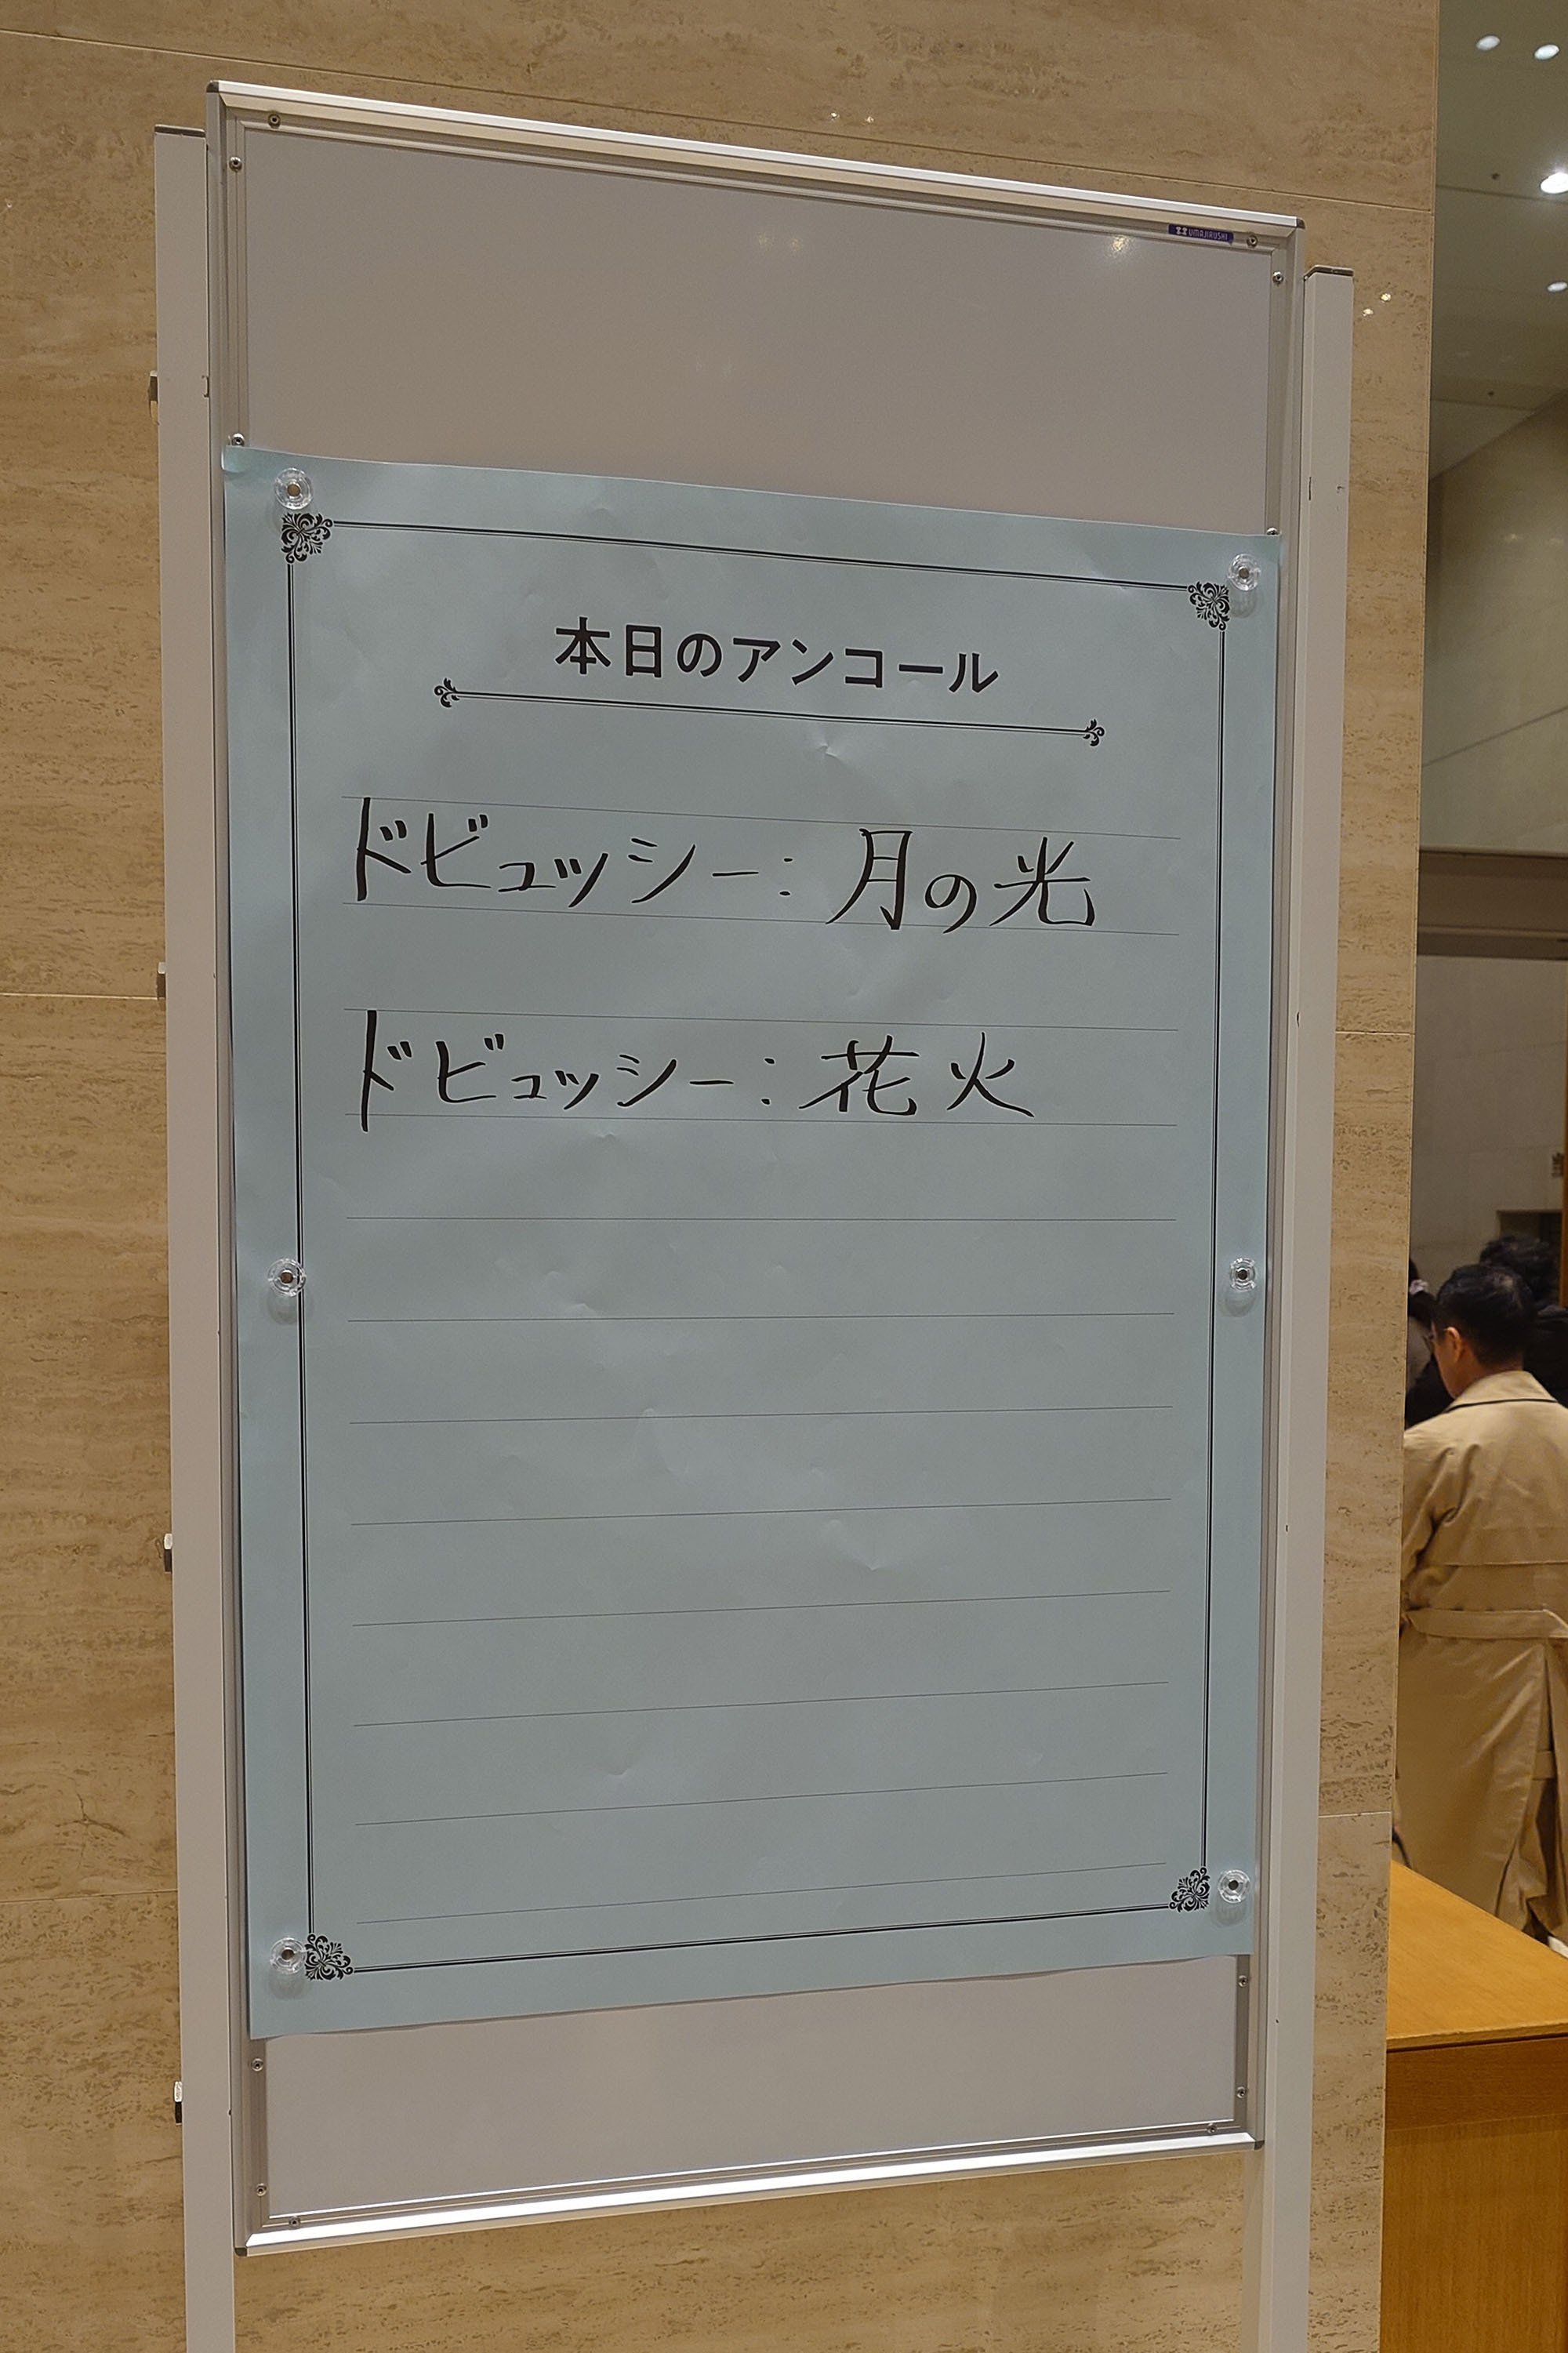 UMAJIRUSHI
本日のアンコール
ドビュッシー：月の光
ドビュッシー：花火